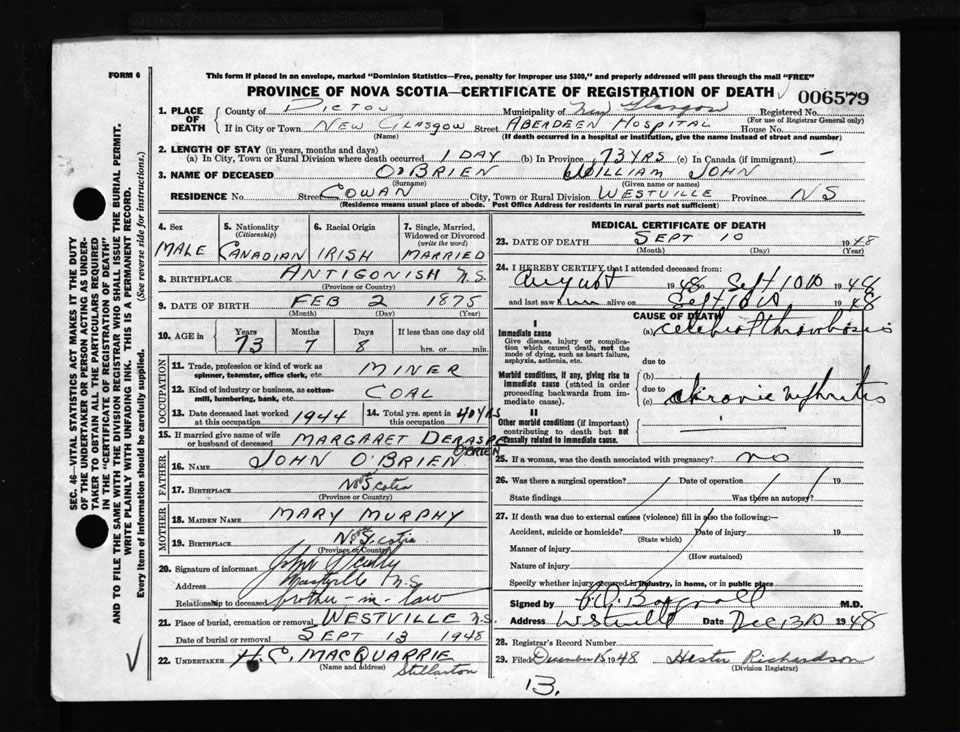 FORM 6
This form if placed in an envelope, marked "Dominion Statistics—Free, penalty for improper use $300," and properly addressed will pass through the mail "FREE"
PROVINCE OF NOVA SCOTIA—CERTIFICATE OF REGISTRATION OF DEATH
006579
1. PLACE OF DEATH County of PICTOU Municipality of New Glasgow Registered No.
(For use of Registrar General only)
If in City or Town NEW GLASGOW Street ABERDEEN HOSPITAL House No.
(Name) (If death occurred in a hospital or institution, give the name instead of street and number)
2. LENGTH OF STAY (in years, months and days)
(a) In City, Town or Rural Division where death occurred 1 DAY (b) In Province 73 YRS (c) In Canada (if immigrant) —
3. NAME OF DECEASED O'BRIEN WILLIAM JOHN
(Surname) (Given name or names)
RESIDENCE No. Street COWAN City, Town or Rural Division WESTVILLE Province NS
(Residence means usual place of abode. Post Office Address for residents in rural parts not sufficient)
4. Sex MALE
5. Nationality (Citizenship) CANADIAN
6. Racial Origin IRISH
7. Single, Married, Widowed or Divorced (write the word) MARRIED
8. BIRTHPLACE ANTIGONISH N.S.
(Province or Country)
9. DATE OF BIRTH FEB 2 1875
(Month) (Day) (Year)
10. AGE in Years Months Days If less than one day old
73 7 8 hrs. or min.
OCCUPATION
11. Trade, profession or kind of work as spinner, teamster, office clerk, etc. MINER
12. Kind of industry or business, as cotton-mill, lumbering, bank, etc. COAL
13. Date deceased last worked at this occupation 1944
14. Total yrs. spent in this occupation 40 YRS
15. If married give name of wife or husband of deceased MARGARET DERASPE O'BRIEN
FATHER
16. NAME JOHN O'BRIEN
17. BIRTHPLACE Nova Scotia
(Province or Country)
MOTHER
18. MAIDEN NAME MARY MURPHY
19. BIRTHPLACE Nova Scotia
(Province or Country)
20. Signature of informant John Scully
Address Westville N.S.
Relationship to deceased brother-in-law
21. Place of burial, cremation or removal WESTVILLE N.S.
Date of burial or removal SEPT 13 1948
22. UNDERTAKER H.C. MACQUARRIE
(Name and address) Stellarton
MEDICAL CERTIFICATE OF DEATH
23. DATE OF DEATH SEPT 10 1948
(Month) (Day) (Year)
24. I HEREBY CERTIFY that I attended deceased from:
August 1948 to Sept 10th 1948
and last saw him alive on Sept 10th 1948
CAUSE OF DEATH
I
Immediate cause (a) cerebral thrombosis
Give disease, injury or complication which caused death, not the mode of dying, such as heart failure, asphyxia, asthenia, etc.
due to
Morbid conditions, if any, giving rise to immediate cause (stated in order proceeding backwards from immediate cause).
(b)
due to
(c) chronic nephritis
II
Other morbid conditions (if important) contributing to death but not causally related to immediate cause.
25. If a woman, was the death associated with pregnancy? no
26. Was there a surgical operation? Date of operation 19
State findings Was there an autopsy?
27. If death was due to external causes (violence) fill in also the following:—
Accident, suicide or homicide? Date of injury 19
(State which)
Manner of injury
(How sustained)
Nature of injury
Specify whether injury occurred in industry, in home, or in public place
Signed by M.D.
Address Westville Date Dec 13th 1948
28. Registrar's Record Number
29. Filed December 15 1948 Hester Richardson
(Division Registrar)
13.
SEC. 46—VITAL STATISTICS ACT MAKES IT THE DUTY OF THE UNDERTAKER OR PERSON ACTING AS UNDERTAKER TO OBTAIN ALL THE PARTICULARS REQUIRED IN THE "CERTIFICATE OF REGISTRATION OF DEATH" AND TO FILE THE SAME WITH THE DIVISION REGISTRAR WHO SHALL ISSUE THE BURIAL PERMIT.
WRITE PLAINLY WITH UNFADING INK. THIS IS A PERMANENT RECORD.
Every item of information should be carefully supplied. (See reverse side for instructions.)